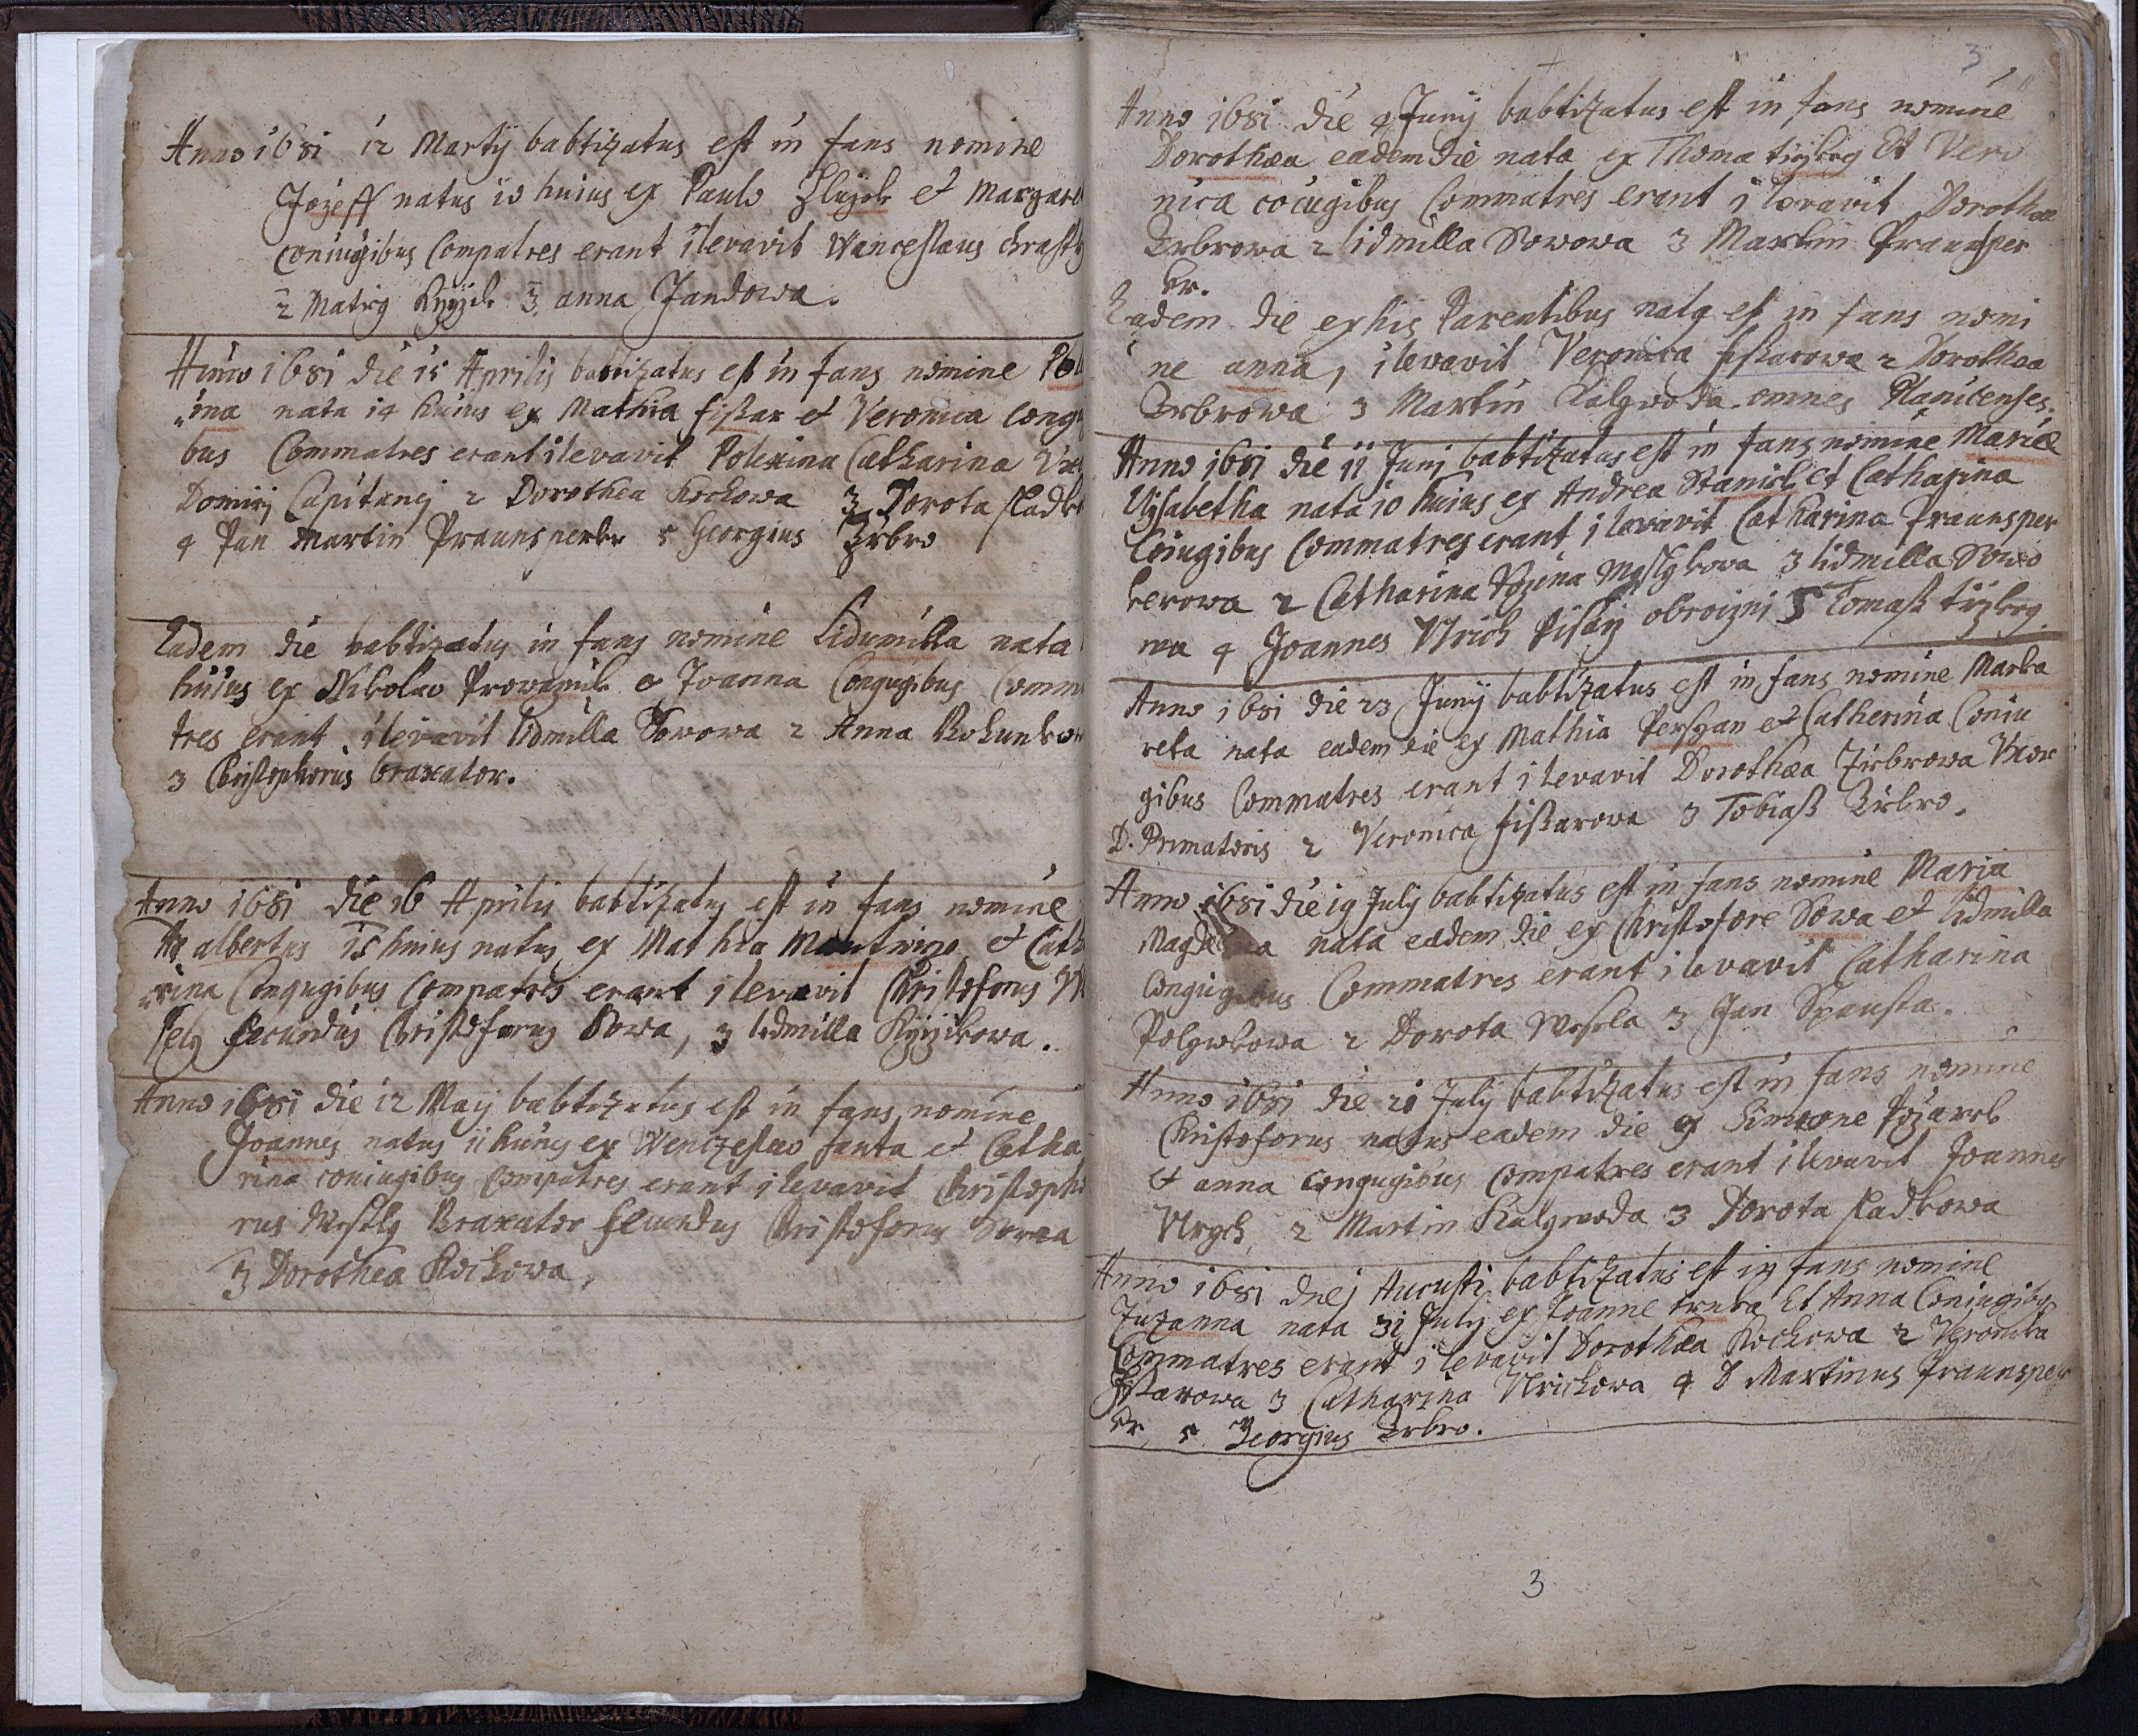 Anno 1681 12 Martij babtizatus est in fans nomine
Jozeff natus 10 huius ex Paulo et Margare
coniugibus Compatres erant 1 levavit Wenceslaus
2 Matieg 3 anna Jandowa.
Anno 1681 die 15 Aprilis babtizatus est in fans nomine Pol
ina nata 14 huius ex Mathia fissar et Veronica congu
bus Commatres erant 1 levavit Polexina Catharina
Domini Capitanei 2 Dorothea Kockowa 3 Dorota sladk
4 Pan Martin Praunsperkr 5 Georgius Zrbro
Eadem die babtizatus in fans nomine Lidumilla nata
huius ex Nikolao Prowaznik et Joanna Congugibus Comm
tres erant 1 levavit lidmilla Sowowa 2 Anna
3 Christophorus braxator.
Anno 1681 die 16 Aprilis babtizatus est in fans nomine
albertus 15 huius natus ex Mathia et Cath
rina Congugibus Compatres erant 1 levavit Christoforus W
sely secundus Christoforus Sowa, 3 lidmilla
Anno 1681 die 12 Maij babtizatus est in fans nomine
Joannes natus 11 huius ex Wenczeslao fanta et Catha
rina coniugibus Compatres erant 1 levavit Christopho
rus Wesely Braxator secundus Christoforus Sowa
3 Dorothea Kockowa,
3
Anno 1681 die 4 Junij babtizatus est in fans nomine
Dorothæa eadem die nata ex Thoma tizkrg Et Vero
nica cociugibus Commatres erant 1 levavit Dorothæa
Zrbrowa 2 lidmilla Sowowa 3 Martin Praunsper
kr.
Eadem die ex his Parentibus nata est in fans nomi
ne anna, 1 levavit Veronica fissarowa 2 Dorothæa
Zrbrowa 3 Martin Kalywoda omnes Planicenses.
Anno 1681 die 11 Junj babtizatus est in fans nomine Mariæ
Elisabetha nata 10 huius ex Andrea Stanisl et Catharina
Coiugibus Commatres erant 1 levavit Catharina Praunsper
kerowa 2 Catharina 3 lidmilla Sowo
wa 4 Joannes Ulrich obroczni 5 Tomass tizkrg.
Anno 1681 die 23 Junij babtizatus est in fans nomine Marka
reta nata eadem die ex Mathia et Catherina Coniu
gibus Commatres erant 1 levavit Dorothæa Zirbrowa Uxor
D. Primatoris 2 Veronica fissarowa 3 Tobiass Zirbro.
Anno 1681 die 19 Julij babtizatus est in fans nomine Maria
Magdalena nata eadem die ex Christofore Sowa et lidmilla
Congugibus Commatres erant 1 levavit Catharina
Polywkowa 2 Dorota Wesela 3 Jan Spausta.
Anno 1681 die 21 Julij babtizatus est in fans nomine
Christoforus natus eadem die ex Simeone
et anna congugibus Compatres erant 1 levavit Joannes
Ulrych 2 Martin Kalywoda 3 Dorota sladkowa
Anno 1681 die 1 Augusti babtizatus est in fans nomine
Zuzanna nata 31 Julij ex Joanne Et Anna Coniugibus
Commatres erant 1 levavit Dorothæa Kockowa 2 Veronika
fissarowa 3 Catharina Ulrichowa 4 D Martinus Praunsper
kr, 5 Georgius Zrbro.
3